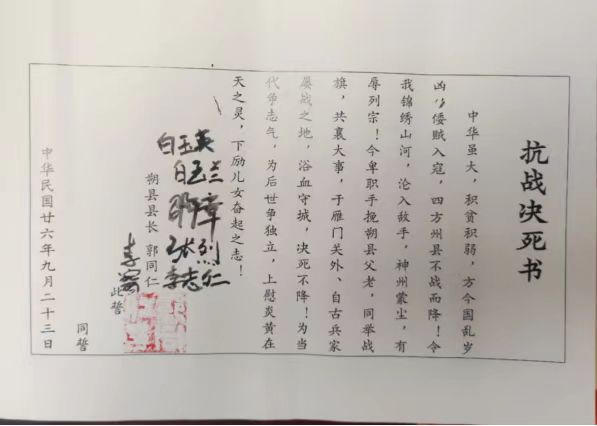 抗战决死书
中华虽大，积贫积弱，方今国乱岁
凶，倭贼入寇，四方州县不战而降！令
我锦绣山河，沦入敌手，神州蒙尘，有
辱列宗！今卑职手挽朔县父老，同举战
旗，共襄大事，于雁门关外、自古兵家
屡战之地，浴血守城，决死不降！为当
代争志气，为后世争独立，上慰炎黄在
天之灵，下励儿女奋起之志！
白玉英
白玉兰
章
张烈
李志仁
朔县县长 郭同仁
李
此誓
同誓
中华民国廿六年九月二十三日